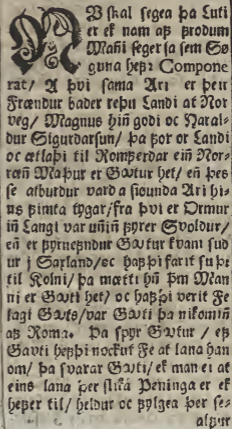 NU skal segea þa Luti
er ek nam aƒ ƒrodum
Mañi seger sa sem Sø
guna heƒr Compone
rat/ A þvi sama Ari er þeir
Frændur bader reþu Landi at Nor
veg/ Magnus hiñ godi oc Haral-
dur Sigurdarsun/ þa ƒor or Landi
oc ætlaþi til Romƒerdar eiñ Nor-
rœñ Maþur er Gøtur het/ eñ þes
se atburdur vard a siounda Ari hi-
ns ƒimta tygar/ fra þvi er Ormur
iñ Langi var uñiñ ƒyrer Svoldur/
eñ er ƒyrneƒndur Gøtur kvam sud
ur j Saxland/ oc haƒþi farit su þr
til Kolni/ þa mœtti hñ þm Man
ni er Gøti het/ oc haƒþi verit Fe
lagi Gøts/ var Gøti þa nikomiñ
aƒ Roma. Þa spyr Gøtur / eƒ
Gavti heƒþi nockut Fe at lana han
om/ þa svarar Gavti/ ek man ei at
eins lana þer slika Peninga er ek
heƒer til/ heldur oc ƒylgea þer se-
alƒur